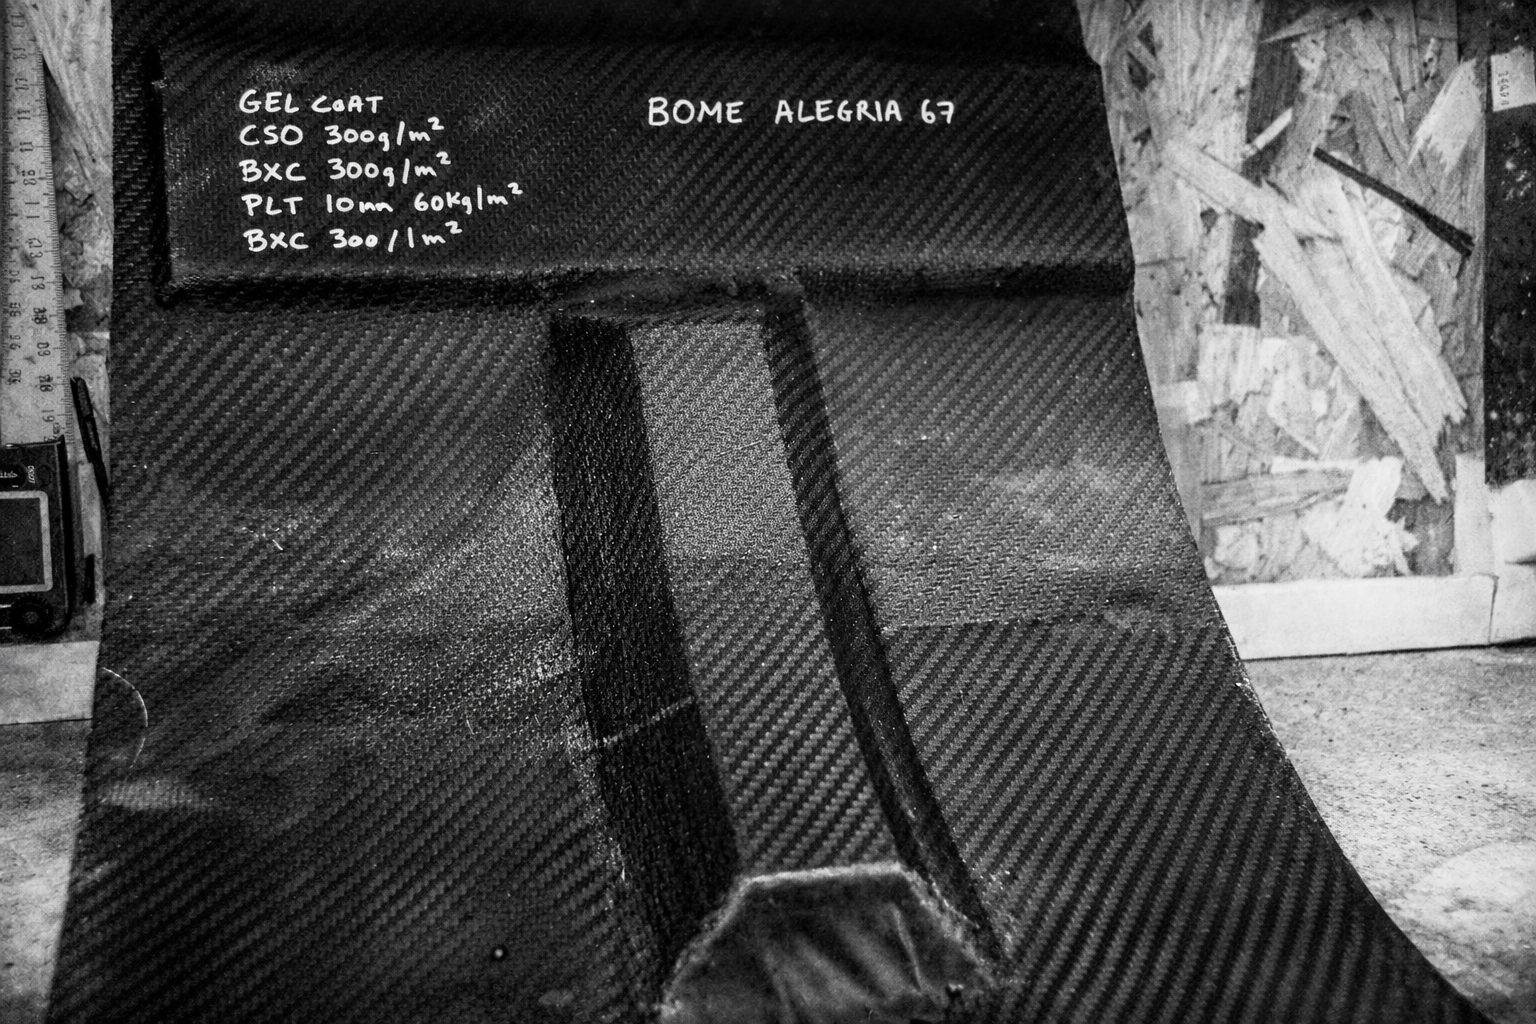 GEL COAT
CSO 300g/m²
BXC 300g/m²
PLT 10mm 60Kg/m²
BXC 300/1m²
BOME ALEGRIA 67